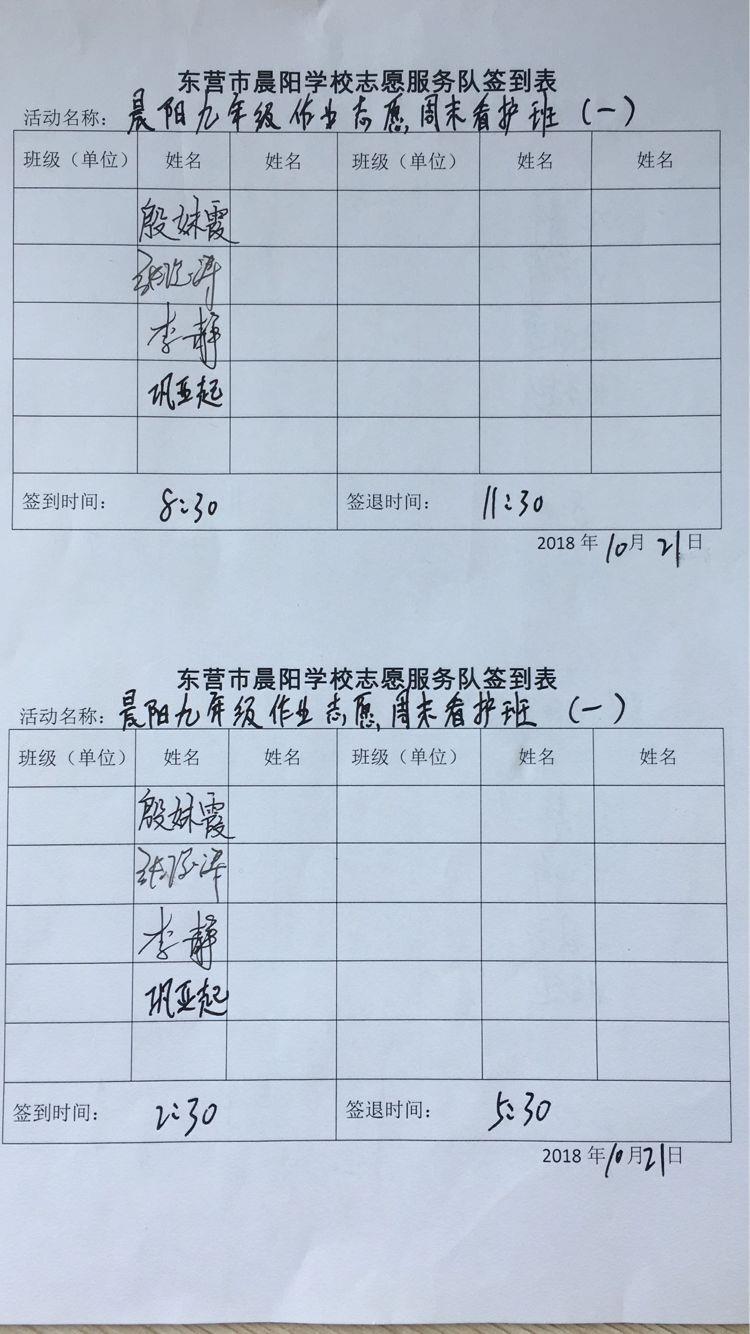 东营市晨阳学校志愿服务队签到表
活动名称：晨阳九年级作业志愿周末看护班（一）
班级（单位） 姓名 姓名 班级（单位） 姓名 姓名
殷妹霞
李静
巩亚起
签到时间： 8:30 签退时间： 11:30
2018 年 10 月 21 日
东营市晨阳学校志愿服务队签到表
活动名称：晨阳九年级作业志愿周末看护班（一）
班级（单位） 姓名 姓名 班级（单位） 姓名 姓名
殷妹霞
李静
巩亚起
签到时间： 2:30 签退时间： 5:30
2018 年 10 月 21 日